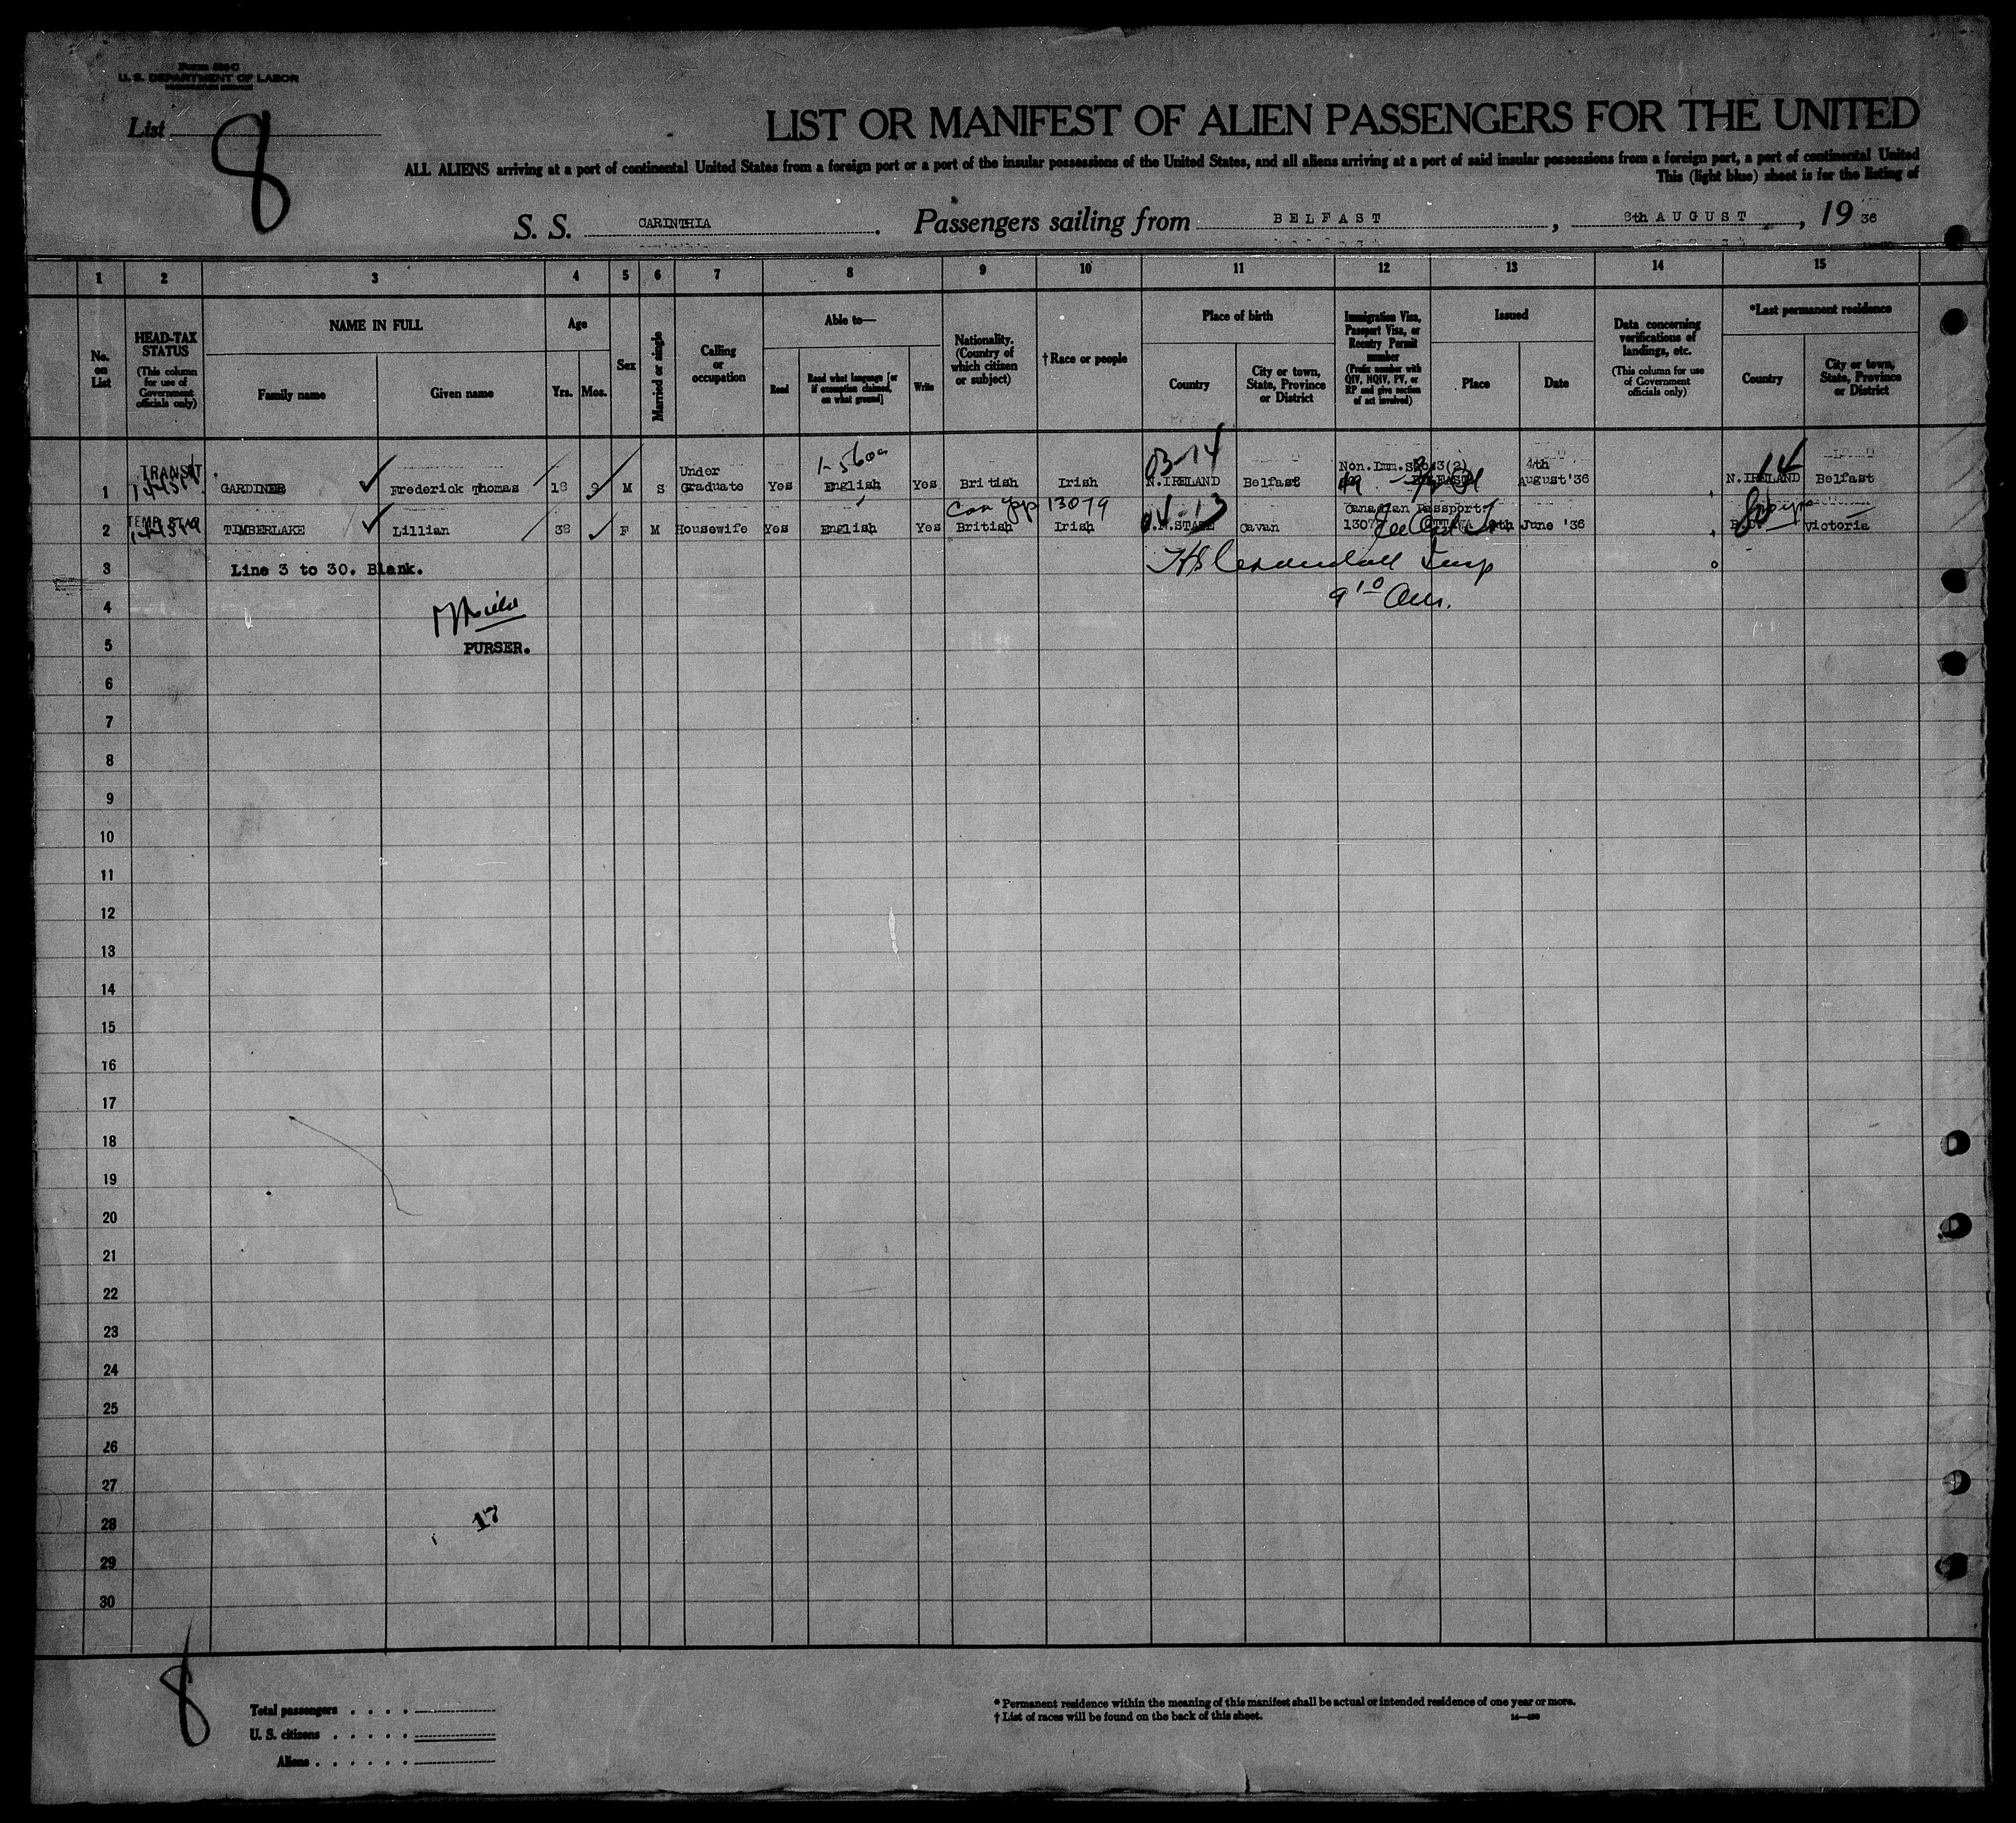 Form 500 C
U. S. DEPARTMENT OF LABOR
List 8
LIST OR MANIFEST OF ALIEN PASSENGERS FOR THE UNITED
ALL ALIENS arriving at a port of continental United States from a foreign port or a port of the insular possessions of the United States, and all aliens arriving at a port of said insular possessions from a foreign port, a port of continental United
This (light blue) sheet is for the listing of
S. S. CARINTHIA. Passengers sailing from BELFAST, 8th AUGUST, 19 36
1 2 3 4 5 6 7 8 9 10 11 12 13 14 15
No. on List
HEAD-TAX STATUS (This column for use of Government officials only)
NAME IN FULL
Family name
Given name
Age
Yrs. Mos.
Sex
Married or single
Calling or occupation
Able to—
Read
Read what language [or if exemption claimed, on what ground]
Write
Nationality. (Country of which citizen or subject)
†Race or people
Place of birth
Country
City or town, State, Province or District
Immigration Visa, Passport Visa, or Reentry Permit number (Prefix number with QIV, NQIV, PV, or RP and give section of act involved)
Issued
Place
Date
Data concerning verifications of landings, etc. (This column for use of Government officials only)
*Last permanent residence
Country
City or town, State, Province or District
03-14 14
1 TRANSIT GARDINER Frederick Thomas 18 9 M S Under Graduate Yes English Yes British Irish N.IRELAND Belfast Non.Imm. 3(2) BELFAST 4th August'36 N.IRELAND Belfast
Can pp 13079
2 TEMP. STAY TIMBERLAKE Lillian 38 F M Housewife Yes English Yes British Irish STATE Cavan Canadian Passport 13079 OTTAWA 9th June '36 B.C. Victoria
3 Line 3 to 30. Blank.
4
9 10 Am.
5 PURSER.
6
7
8
9
10
11
12
13
14
15
16
17
18
19
20
21
22
23
24
25
26
27
28 17
29
30
8
Total passengers . . . .
U. S. citizens . . . . .
Aliens . . . . . .
* Permanent residence within the meaning of this manifest shall be actual or intended residence of one year or more.
† List of races will be found on the back of this sheet.